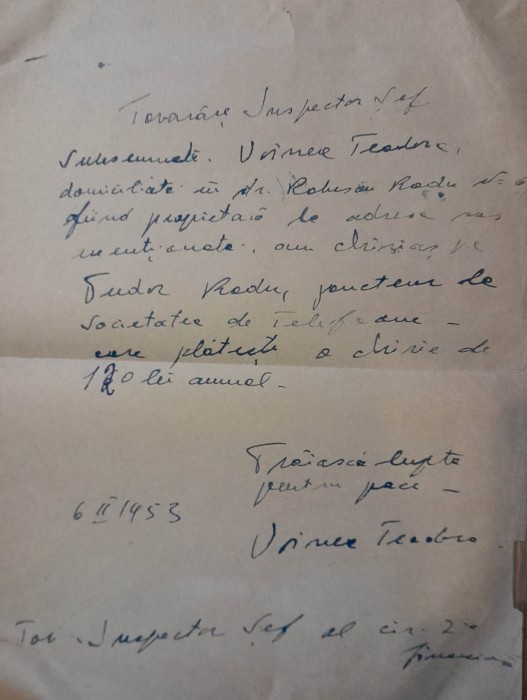 Tovarășe Inspector Șef
Subsemnata, Voinea Teodora,
domiciliată în str. Radu No 6
fiind proprietară la adresa sus
menționată, am chiriaș pe
Tudor Radu, la
Societatea de Telefoane –
care plătește o chirie de
120 lei anual –
Trăiască lupta
pentru pace –
6 II 1953
Voinea Teodora
Tov. Inspector Șef al circ. 2